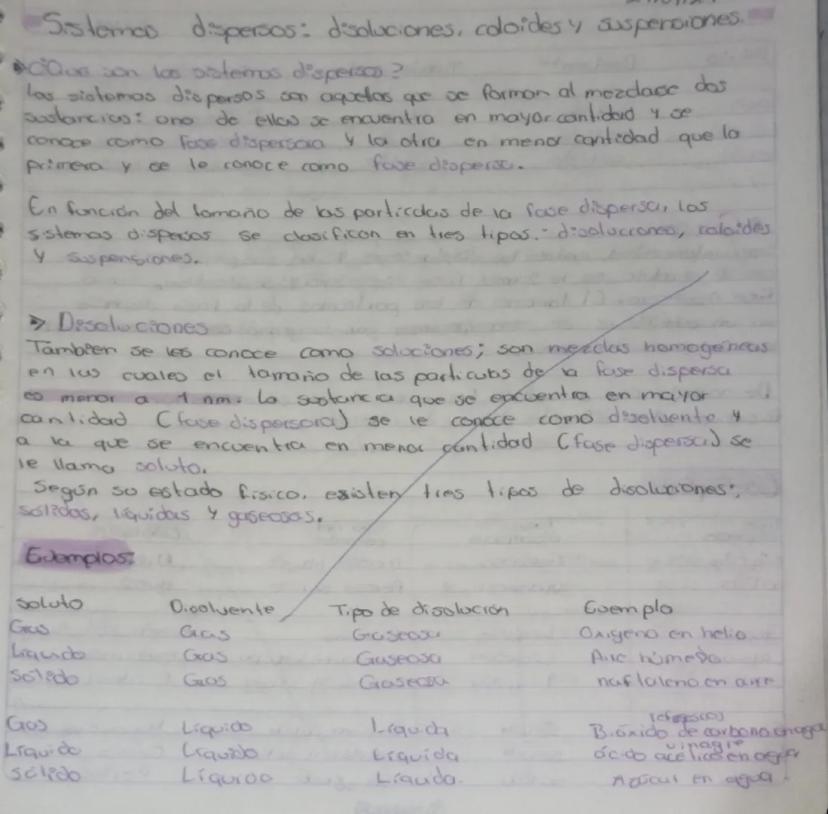 Sistemas dispersos: disoluciones, coloides y suspensiones.
¿Que son los sistemas dispersos?
Los sistemas dispersos son aquellos que se forman al mezclarse dos
sustancias: una de ellas se encuentra en mayor cantidad y se
conoce como fase dispersora y la otra en menor cantidad que la
primera y se le conoce como fase dispersa.
En función del tamaño de las partículas de la fase dispersa, los
sistemas dispersos se clasifican en tres tipos.- disoluciones, coloides
y suspensiones.
Disoluciones
Tambien se les conoce como soluciones; son mezclas homogéneas
en las cuales el tamaño de las particulas de la fase dispersa
es menor a 1 nm. La sustancia que se encuentra en mayor
cantidad (fase dispersora) se le conoce como disolvente y
a la que se encuentra en menor cantidad (fase dispersa) se
le llama soluto.
Según su estado físico, existen tres tipos de disoluciones:
sólidas, líquidas y gaseosas.
Ejemplos:
Soluto Disolvente Tipo de disolución Ejemplo
Gas Gas Gaseosa Oxigeno en helio
Liquido Gas Gaseosa Aire húmedo
Solido Gas Gaseosa naftaleno en aire
(refresco)
Gas Líquido Liquida Bióxido de carbono en agua
vinagre
Líquido Líquido Líquida ácido acético en agua
Sólido Líquido Líquida Azúcar en agua